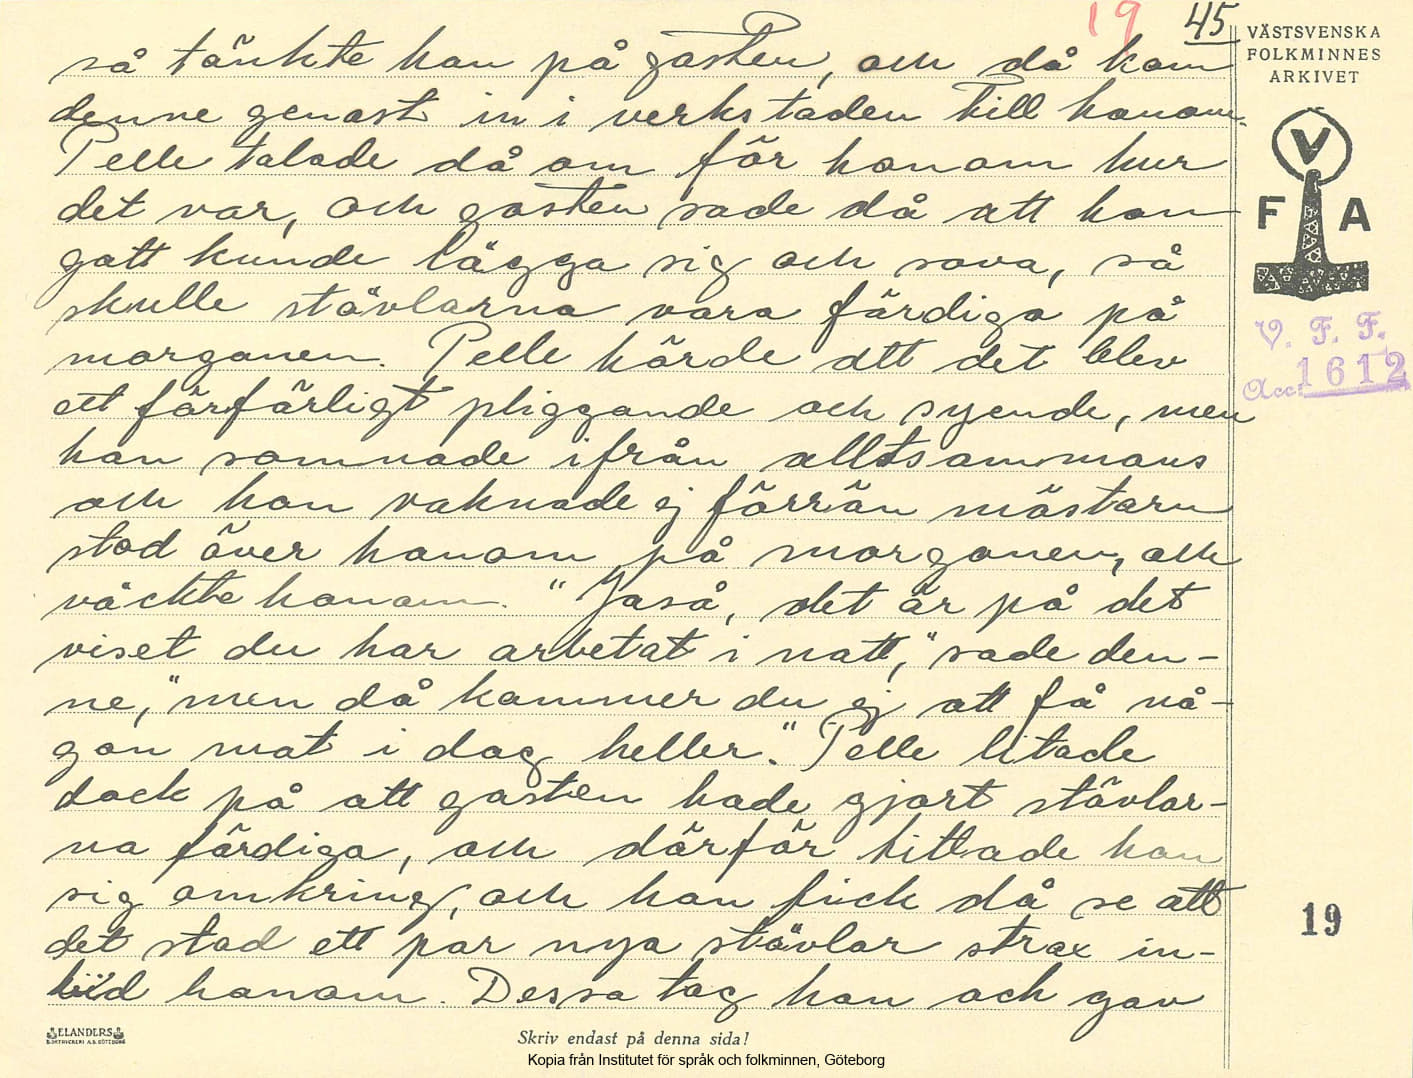 19 45
VÄSTSVENSKA
FOLKMINNES
ARKIVET
V
F A
V. F. F.
Acc: 1612
så tänkte han på gasten, och då kom
denne genast in i verkstaden till honom.
Pelle talade då om för honom hur
det var, och gasten sade då att han
gott kunde lägga sig och sova, så
skulle stövlarna vara färdiga på
morgonen. Pelle hörde att det blev
ett förfärligt pliggande och syende, men
han somnade ifrån alltsammans
och han vaknade ej förrän mästarn
stod över honom på morgonen, och
väckte honom. "Jaså, det är på det
viset du har arbetat i natt," sade den-
ne, "men då kommer du ej att få nå-
gon mat i dag heller." Pelle litade
dock på att gasten hade gjort stövlar-
na färdiga, och därför tittade han
sig omkring, och han fick då se att
det stod ett par nya stövlar strax in-
vid honom. Dessa tog han och gav
19
ELANDERS
BOKTRYCKERI A.B. GÖTEBORG
Skriv endast på denna sida!
Kopia från Institutet för språk och folkminnen, Göteborg